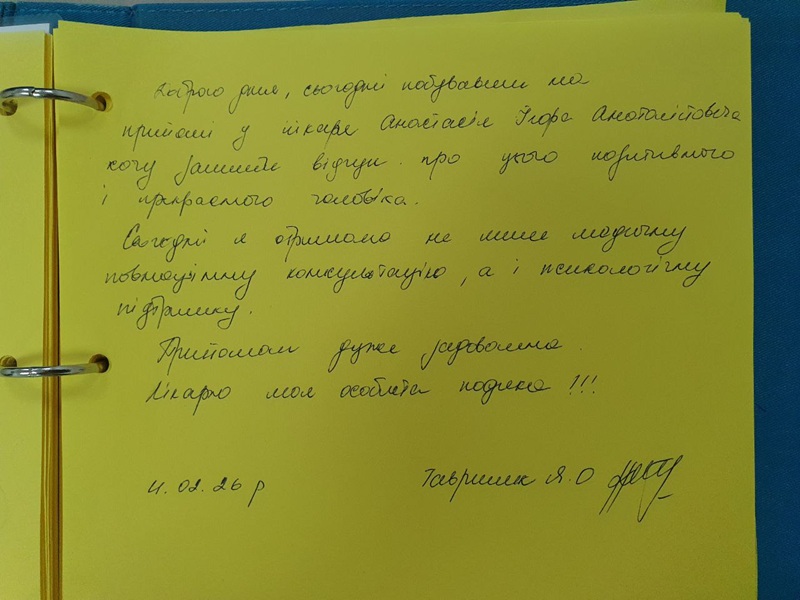 Доброго дня, сьогодні побувавши на
прийомі у лікаря Анастасія Ігоря Анатолійовича
хочу залишити відгук про цього позитивного
і прекрасного чоловіка.
Сьогодні я отримала не лише медичну
повноцінну консультацію, а і психологічну
підтримку.
Прийомом дуже задоволена.
Лікарю моя особлива подяка !!!
11.02.26 р Гаврилюк Я.О